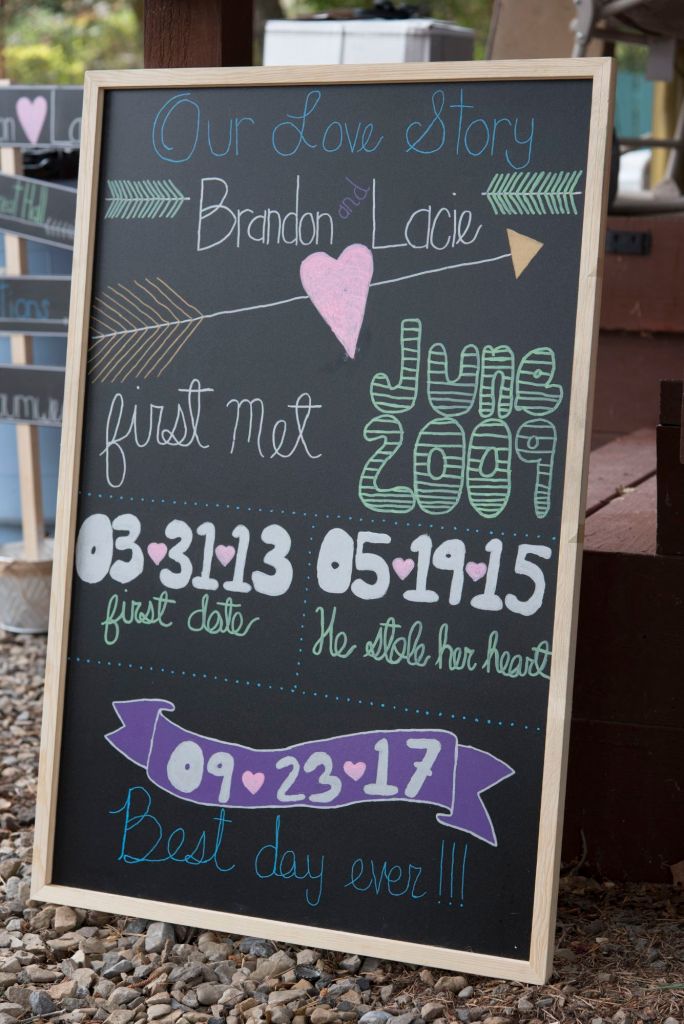 Our Love Story
Brandon and Lacie
first met
June
2009
03 31 13
first date
05 19 15
He stole her heart
09 23 17
Best day ever!!!